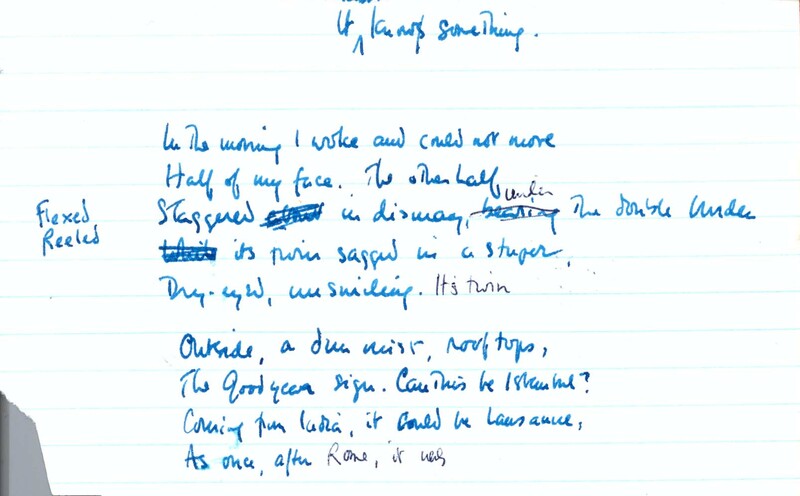 It knows something.
In the morning I woke and could not move
Half of my face. The other half, under
Flexed
Reeled
Staggered in dismay, bearing The double Under
its twin sagged in a stupor,
Dry-eyed, unsmiling. Its twin
Outside, a dun mist, rooftops,
The Goodyear sign. Can this be Istanbul?
Coming from India, it could be Lausanne,
As once, after Rome, it was